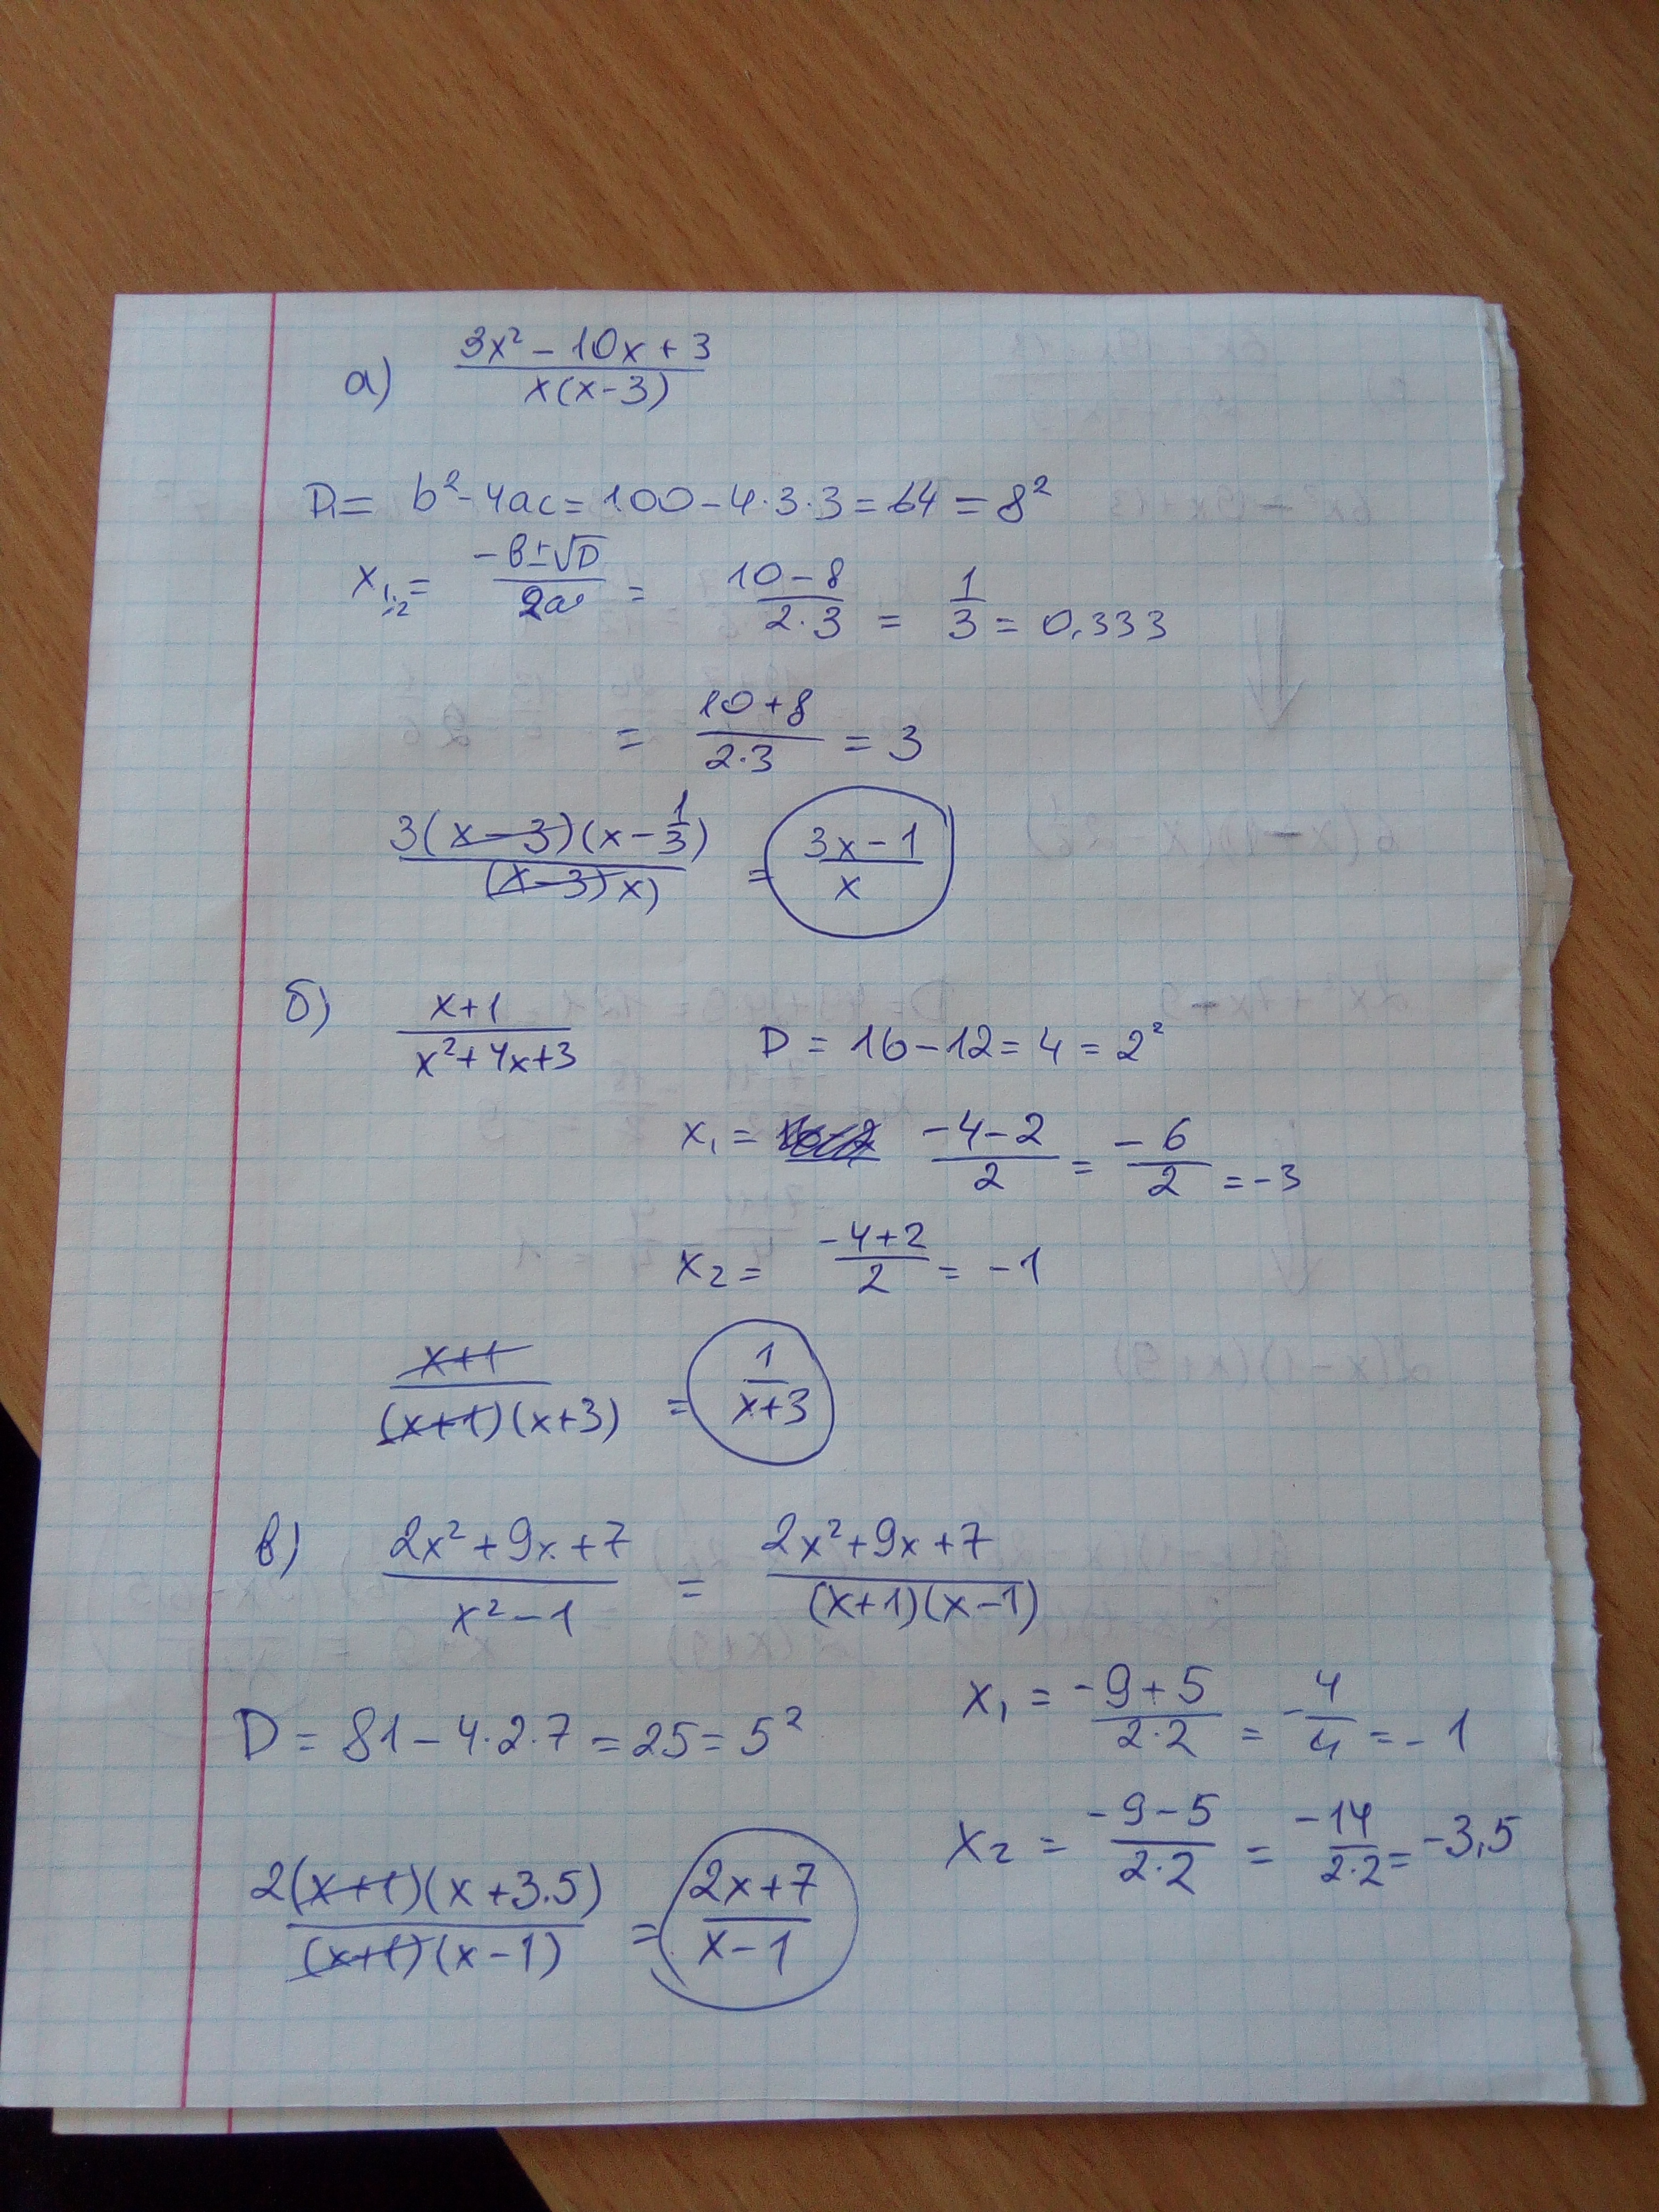 а) (3x² - 10x + 3)/(x(x-3))
D = b² - 4ac = 100 - 4·3·3 = 64 = 8²
x₁,₂ = (-b ± √D)/(2a) = (10 - 8)/(2·3) = 1/3 = 0,333
= (10 + 8)/(2·3) = 3
3(x-3)(x - 1/3)/((x-3)x) = (3x - 1)/x
б) (x+1)/(x² + 4x + 3) D = 16 - 12 = 4 = 2²
x₁ = (-4 - 2)/2 = -6/2 = -3
x₂ = (-4 + 2)/2 = -1
(x+1)/((x+1)(x+3)) = 1/(x+3)
в) (2x² + 9x + 7)/(x² - 1) = (2x² + 9x + 7)/((x+1)(x-1))
D = 81 - 4·2·7 = 25 = 5²
x₁ = (-9 + 5)/(2·2) = -4/4 = -1
x₂ = (-9 - 5)/(2·2) = -14/(2·2) = -3,5
2(x+1)(x + 3.5)/((x+1)(x-1)) = (2x + 7)/(x - 1)